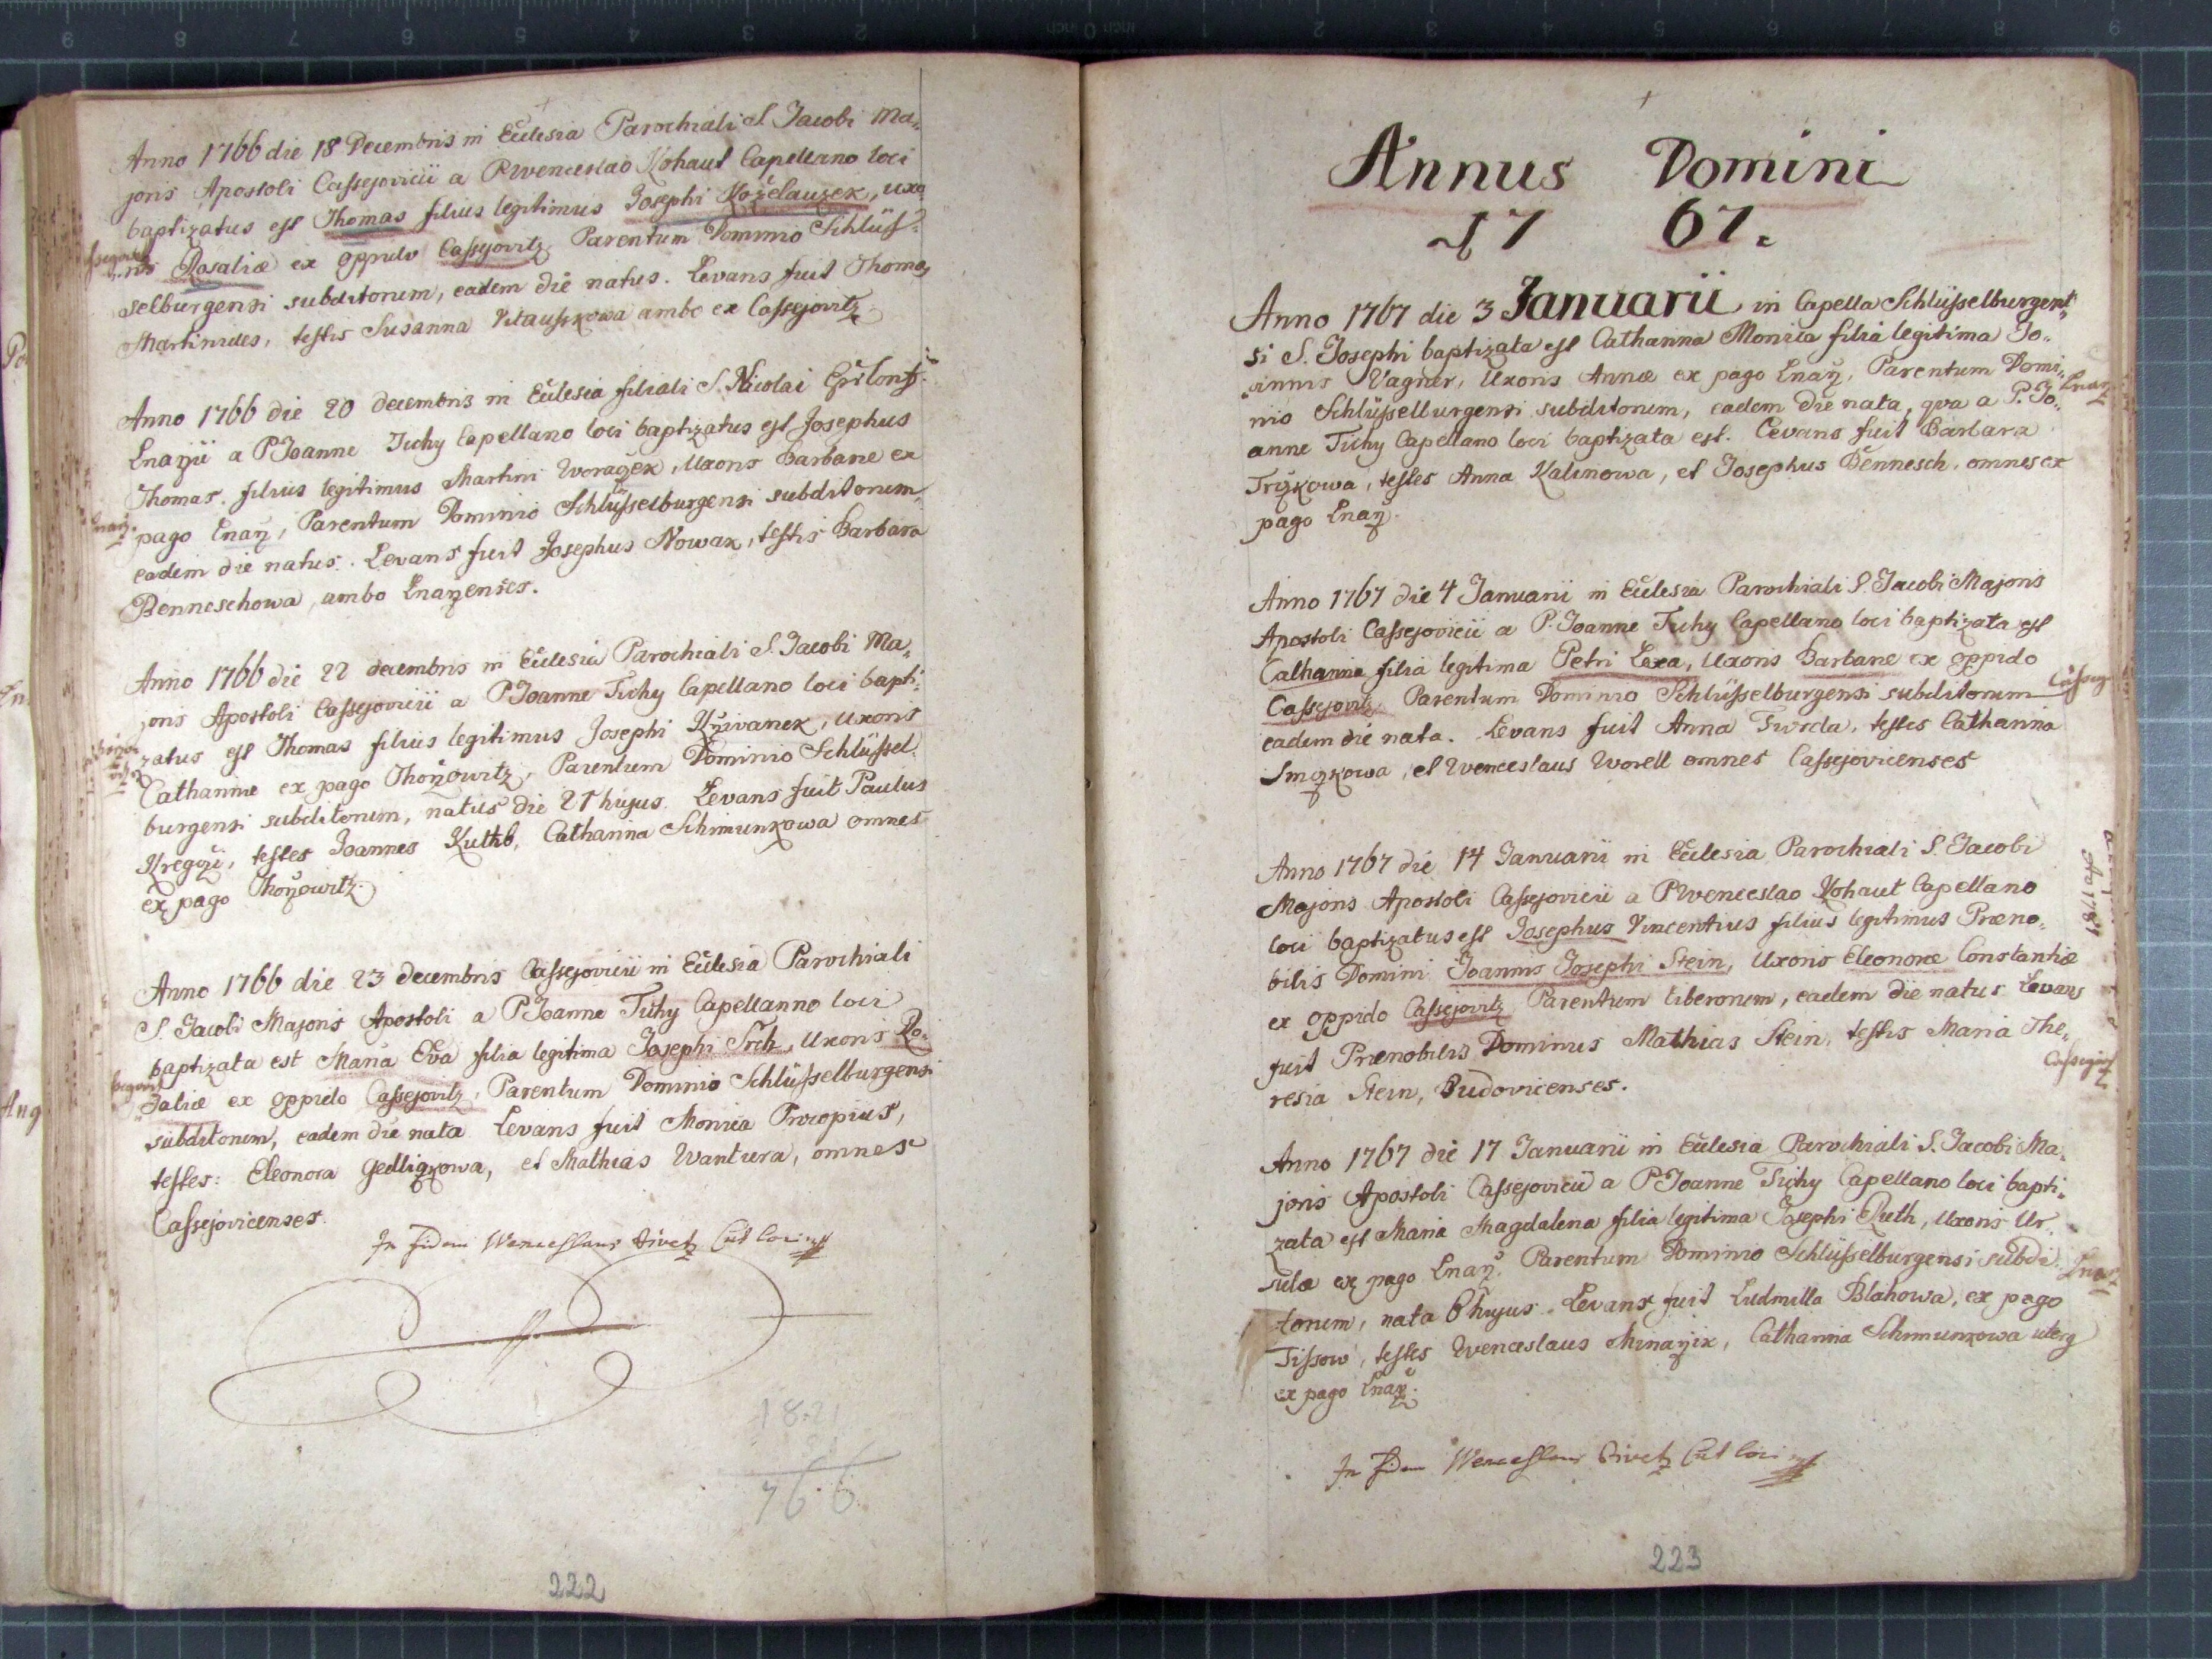 Anno 1766 die 18 Decembris in Ecclesia Parochiali S. Jacobi Ma„
joris Apostoli Cassejovicii a P Wenceslao Kohaut Capellano loci
baptizatus est Thomas filius legitimus Josephi Kozelauzek, uxo„
„ris Rosaliæ ex oppido Cassejovitz, Parentum Dominio Schlüs„
selburgensi subditorum, eadem die natus. Levans fuit Thomas
Martinides, testis Susanna ambo ex Cassejovitz
Anno 1766 die 20 decembris in Ecclesia filiali S. Nicolai
Lnazii a P Joanne Tichy Capellano loci baptizatus est Josephus
Thomas filius legitimus Martini Woraczek, Uxoris Barbaræ ex
Lnarz.
pago Lnarz, Parentum Dominio Schlüsselburgensi subditorum
eadem die natus. Levans fuit Josephus Nowak, testis Barbara
Benneschowa, ambo Lnarzenses.
Anno 1766 die 22 decembris in Ecclesia Parochiali S. Jacobi Ma„
joris Apostoli Cassejovicii a P Joanne Tichy Capellano loci bapti„
zatus est Thomas filius legitimus Josephi Krzivanek, uxoris
Catharinæ ex pago Thorzowitz, Parentum Dominio Schlüssel„
burgensi subditorum, natus die 21 hujus. Levans fuit Paulus
Kregczi, testes Joannes Catharina Schimunkowa omnes
ex pago Thorzowitz.
Anno 1766 die 23 decembris Cassejovicii in Ecclesia Parochiali
S. Jacobi Majoris Apostoli a P Joanne Tichy Capellanno loci
baptizata est Maria Eva filia legitima Josephi Srch, Uxoris Ro„
saliæ ex oppido Cassejovitz, Parentum Dominio Schlüsselburgensi
subditorum, eadem die nata Levans fuit Monica Procopius,
testes: Eleonora Gedliczkowa, et Mathias Wantura, omnes
Cassejovicenses.
In Fidem Wenceslaus Divetz Cur loci mp
18.21
766
222
Annus Domini
1767.
Anno 1767 die 3 Januarii in Capella Schlüsselburgen„
si S. Josephi baptizata est Catharina Monica filia legitima Jo„
„annis Vagner, Uxoris Annæ ex pago Lnarz, Parentum Domi„
Lnarz
nio Schlüsselburgensi subditorum, eadem die nata, qva a P. Jo„
anne Tichy Capellano loci baptizata est. Levans fuit Barbara
testes Anna Kalinowa, et Josephus Bennesch, omnes ex
pago Lnarz.
Anno 1767 die 4 Januarii in Ecclesia Parochiali S. Jacobi Majoris
Apostoli Cassejovicii a P. Joanne Tichy Capellano loci baptizata est
Catharina filia legitima Petri Lexa, Uxoris Barbaræ ex oppido
Cassejovitz, Parentum Dominio Schlüsselburgensi subditorum
eadem die nata. Levans fuit Anna Twrda, testes Catharina
Smrzkowa, et Wenceslaus Worell omnes Cassejovicenses
Anno 1767 die 14 Januarii in Ecclesia Parochiali S. Jacobi
Majoris Apostoli Cassejovicii a P Wenceslao Kohaut Capellano
loci baptizatus est Josephus Vincentius filius legitimus Præno„
bilis Domini Joannis Josephi Stein, Uxoris Eleonoræ Constantiæ
ex oppido Cassejovitz Parentum liberorum, eadem die natus Levans
fuit Prænobilis Dominus Mathias Stein, testis Maria The„
resia Stein, Budovicenses.
Anno 1767 die 17 Januarii in Ecclesia Parochiali S. Jacobi Ma„
joris Apostoli Cassejovicii a P Joanne Tichy Capellano loci bapti„
zata est Maria Magdalena filia legitima Josephi Ruth, Uxoris Ur„
sulæ ex pago Lnarz, Parentum Dominio Schlüsselburgensi subdi„
Lnarz
torum, nata 6 hujus. Levans fuit Ludmilla Blahowa, ex pago
Tissow, testes Wenceslaus Minarzik, Catharina Schimunkowa uterq
ex pago Lnarz.
In Fidem Wenceslaus Divetz Cur loci mp
223